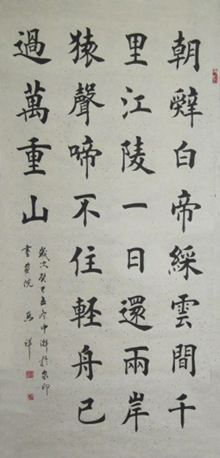 朝辤白帝綵雲間千
里江陵一日還兩岸
猿聲啼不住輕舟已
過萬重山
歲次癸巳孟冬中澣於京印
書畫院